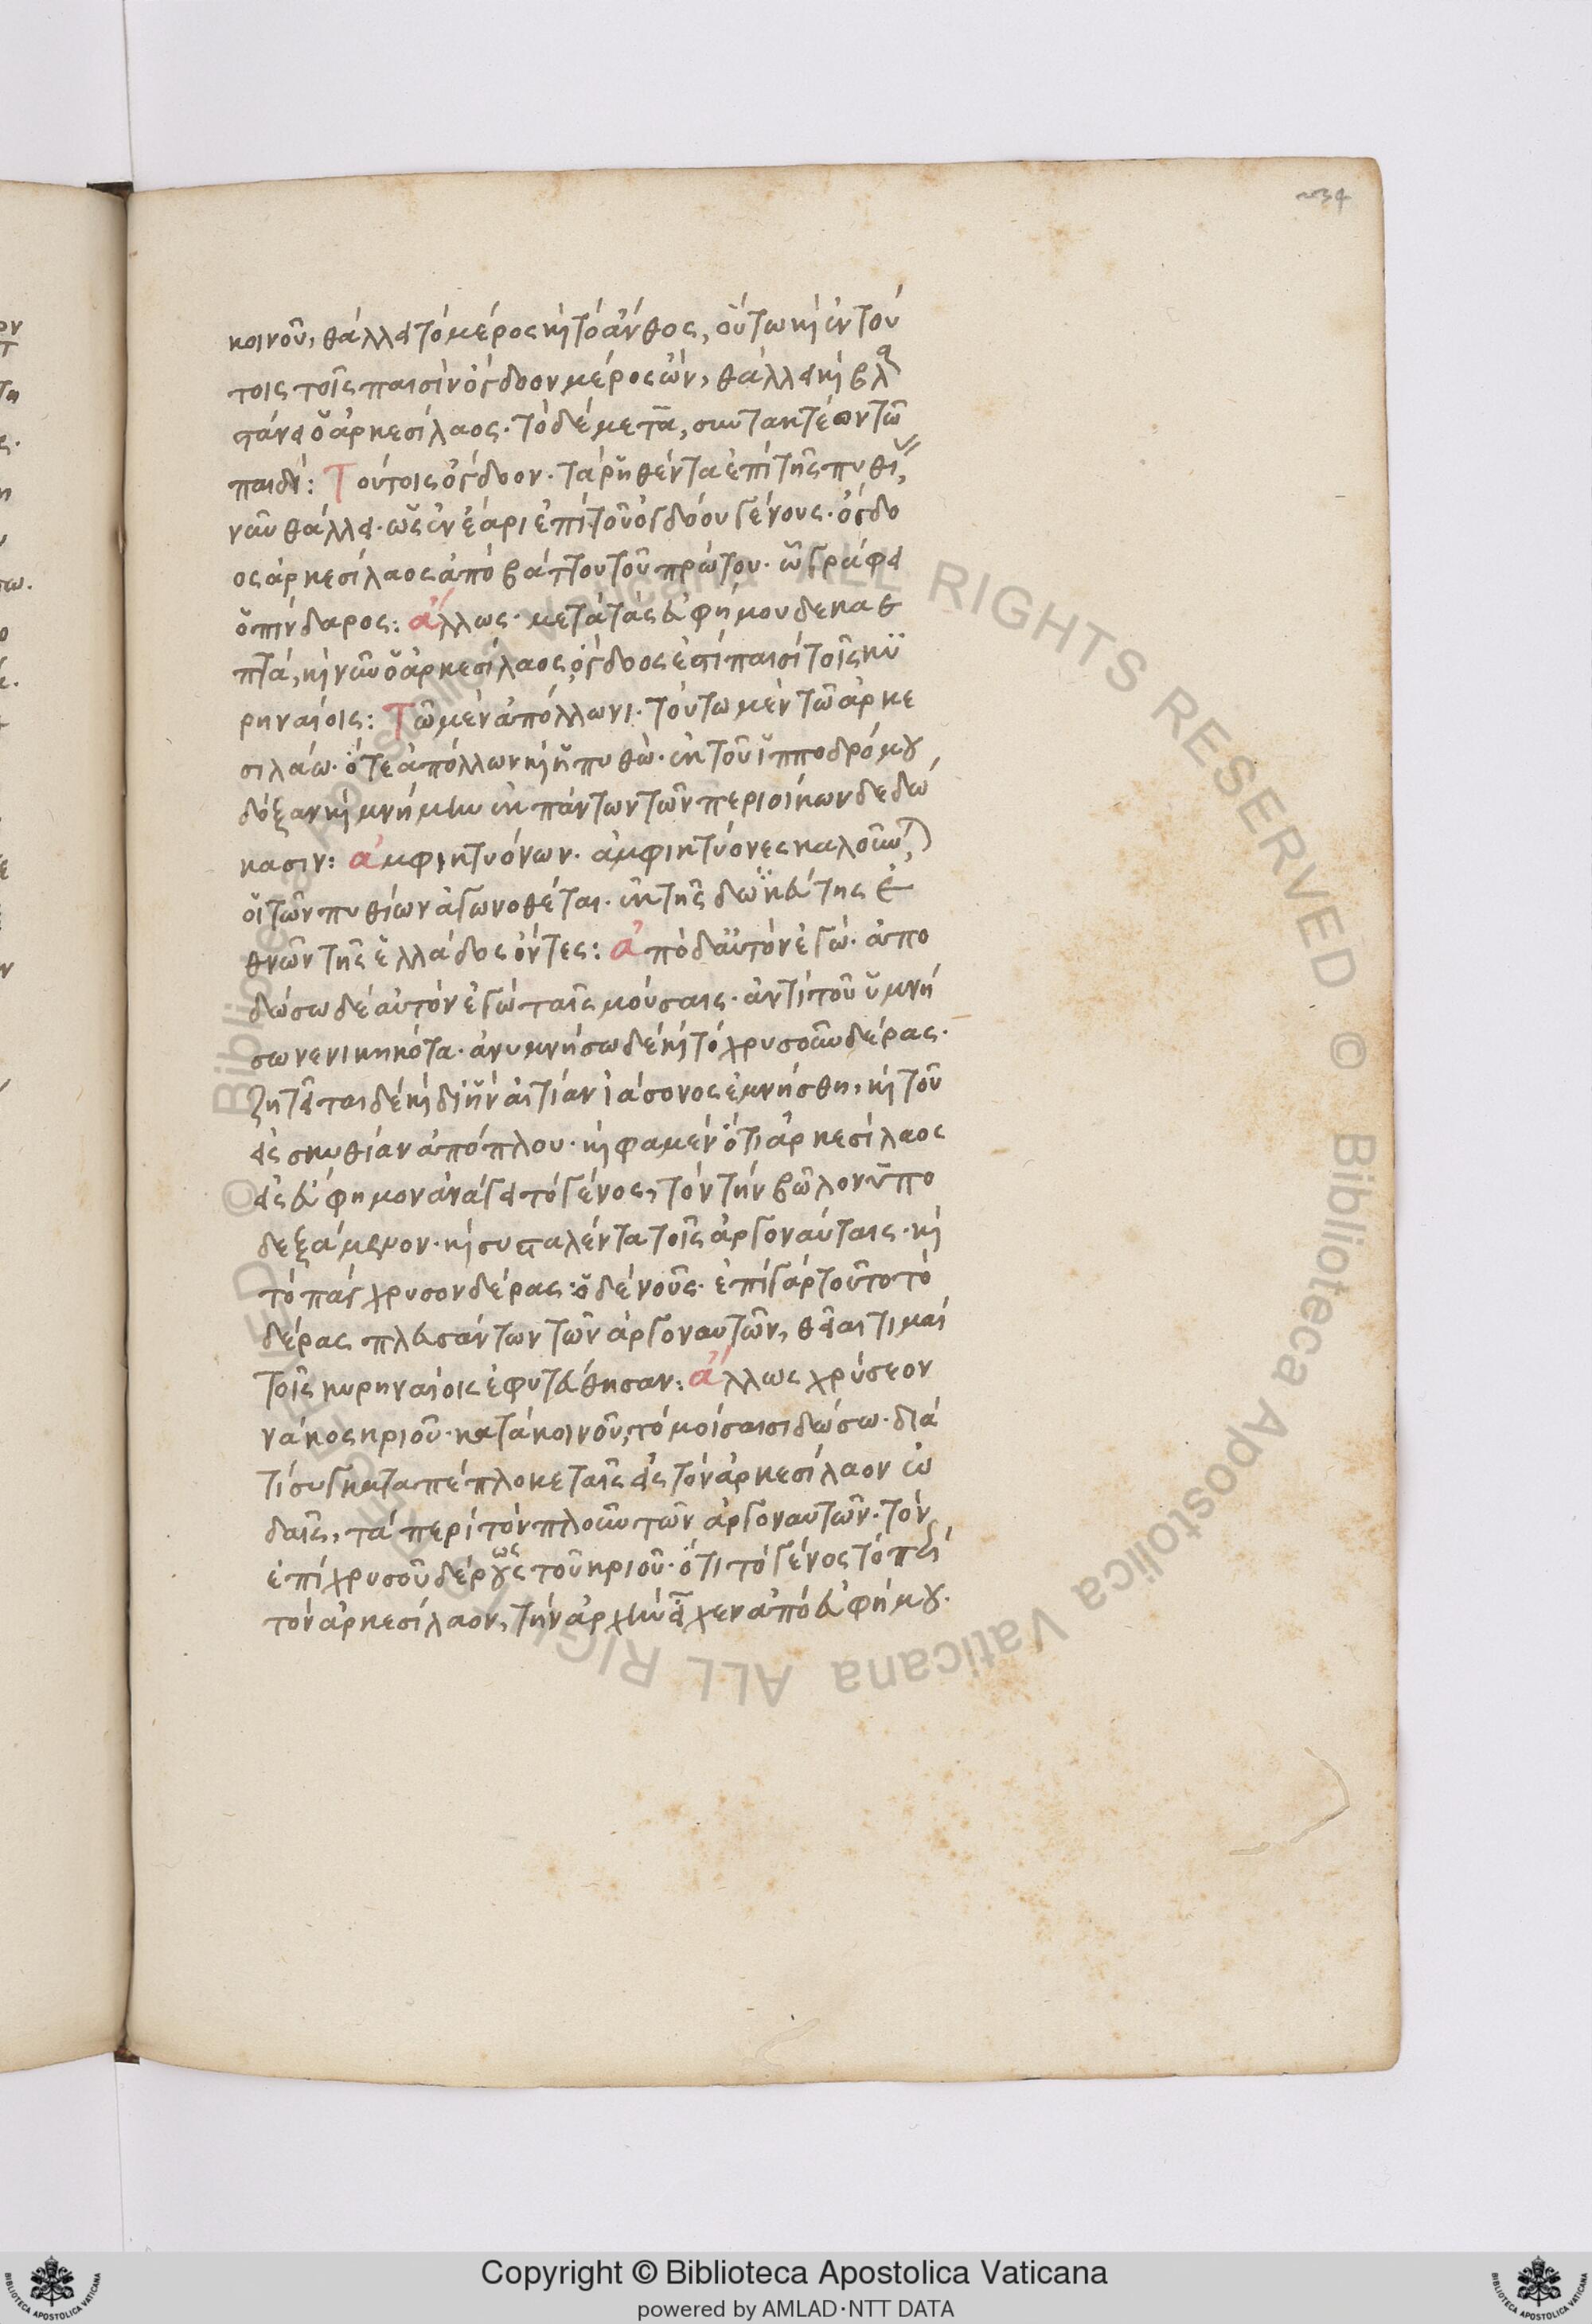 234
κοινοῦ, θάλλει τὸ μέρος κὶ τὸ ἄνθος, οὕτω κὶ ἐν τού
τοις τοῖς παισὶν ὄγδοον μέρος ὢν, θάλλει κὶ βλα
στάνει ὁ ἀρκεσίλαος. τὸ δὲ μετὰ, συντακτέον τῶ
παιδί: Τούτοις ὄγδοον. τὰ ῥηθέντα ἐπὶ τῆς
νῦν θάλλει. ὡς ἐν ἔαρι ἐπὶ τοῦ ὀγδόου γένους. ὄγδο
ος ἀρκεσίλαος ἀπὸ βάττου τοῦ πρώτου. ὧ γράφει
ὁ πίνδαρος: ἄλλως. μετὰ τὰς εὐφήμου δεκαε
πτά, κὶ νῦν ὁ ἀρκεσίλαος ὄγδοος ἐστὶ παισὶ τοῖς κυ
ρηναίοις: Τῶ μὲν ἀπόλλωνι. τούτω μὲν τῶ ἀρκε
σιλάω. ὅτε ἀπόλλων κὶ ἡ πυθὼ. ἐκ τοῦ ἱπποδρόμου
δόξαν κὶ μνήμην ἐκ πάντων τῶν περιοίκων δεδώ
κασιν: ἀμφικτυόνων. ἀμφικτύονες καλοῦνται
οἱ τῶν πυθίων ἀγωνοθέται. ἐκ τῆς δώδεκα τῆς ἐ
θνῶν τῆς ἑλλάδος ὄντες: ἀπὸ δ' αὐτὸν ἐγώ. ἀπο
δώσω δὲ αὐτὸν ἐγὼ ταῖς μούσαις. ἀντὶ τοῦ ὑμνή
σω νενικηκότα. ἀνυμνήσω δὲ κὶ τὸ χρυσοῦν δέρας.
ζητεῖται δὲ κὶ δι' ἣν αἰτίαν ἰάσονος ἐμνήσθη, κὶ τοῦ
εἰς σκυθίαν ἀπόπλου. κὶ φαμὲν ὅτι ἀρκεσίλαος
εἰς εὔφημον ἀνάγει τὸ γένος, τὸν τὴν βῶλον ὑπο
δεξάμενον. κὶ συσταλέντα τοῖς ἀργοναύταις. κὶ
τὸ πάγχρυσον δέρας: ὁ δὲ νοῦς. ἐπὶ γὰρ τοῦτο τὸ
δέρας πλευσάντων τῶν ἀργοναυτῶν, θεῖαι τιμαὶ
τοῖς κυρηναίοις ἐφυτεύθησαν: ἄλλως χρύσεον
νάκος κριοῦ. κατὰ κοινοῦ, τὸ μοίσαισι δώσω. διὰ
τί συγκαταπέπλοκε ταῖς εἰς τὸν ἀρκεσίλαον ὠ
δαῖς, τὰ περὶ τὸν πλοῦν τῶν ἀργοναυτῶν. τὸν
ἐπὶ χρυσοῦ δέρους ως τοῦ κριοῦ. ὅτι τὸ γένος τὸ περὶ
τὸν ἀρκεσίλαον, τὴν ἀρχὴν εἶχεν ἀπὸ εὐφήμου.
© Biblioteca Apostolica Vaticana ALL RIGHTS RESERVED
Copyright © Biblioteca Apostolica Vaticana
powered by AMLAD·NTT DATA